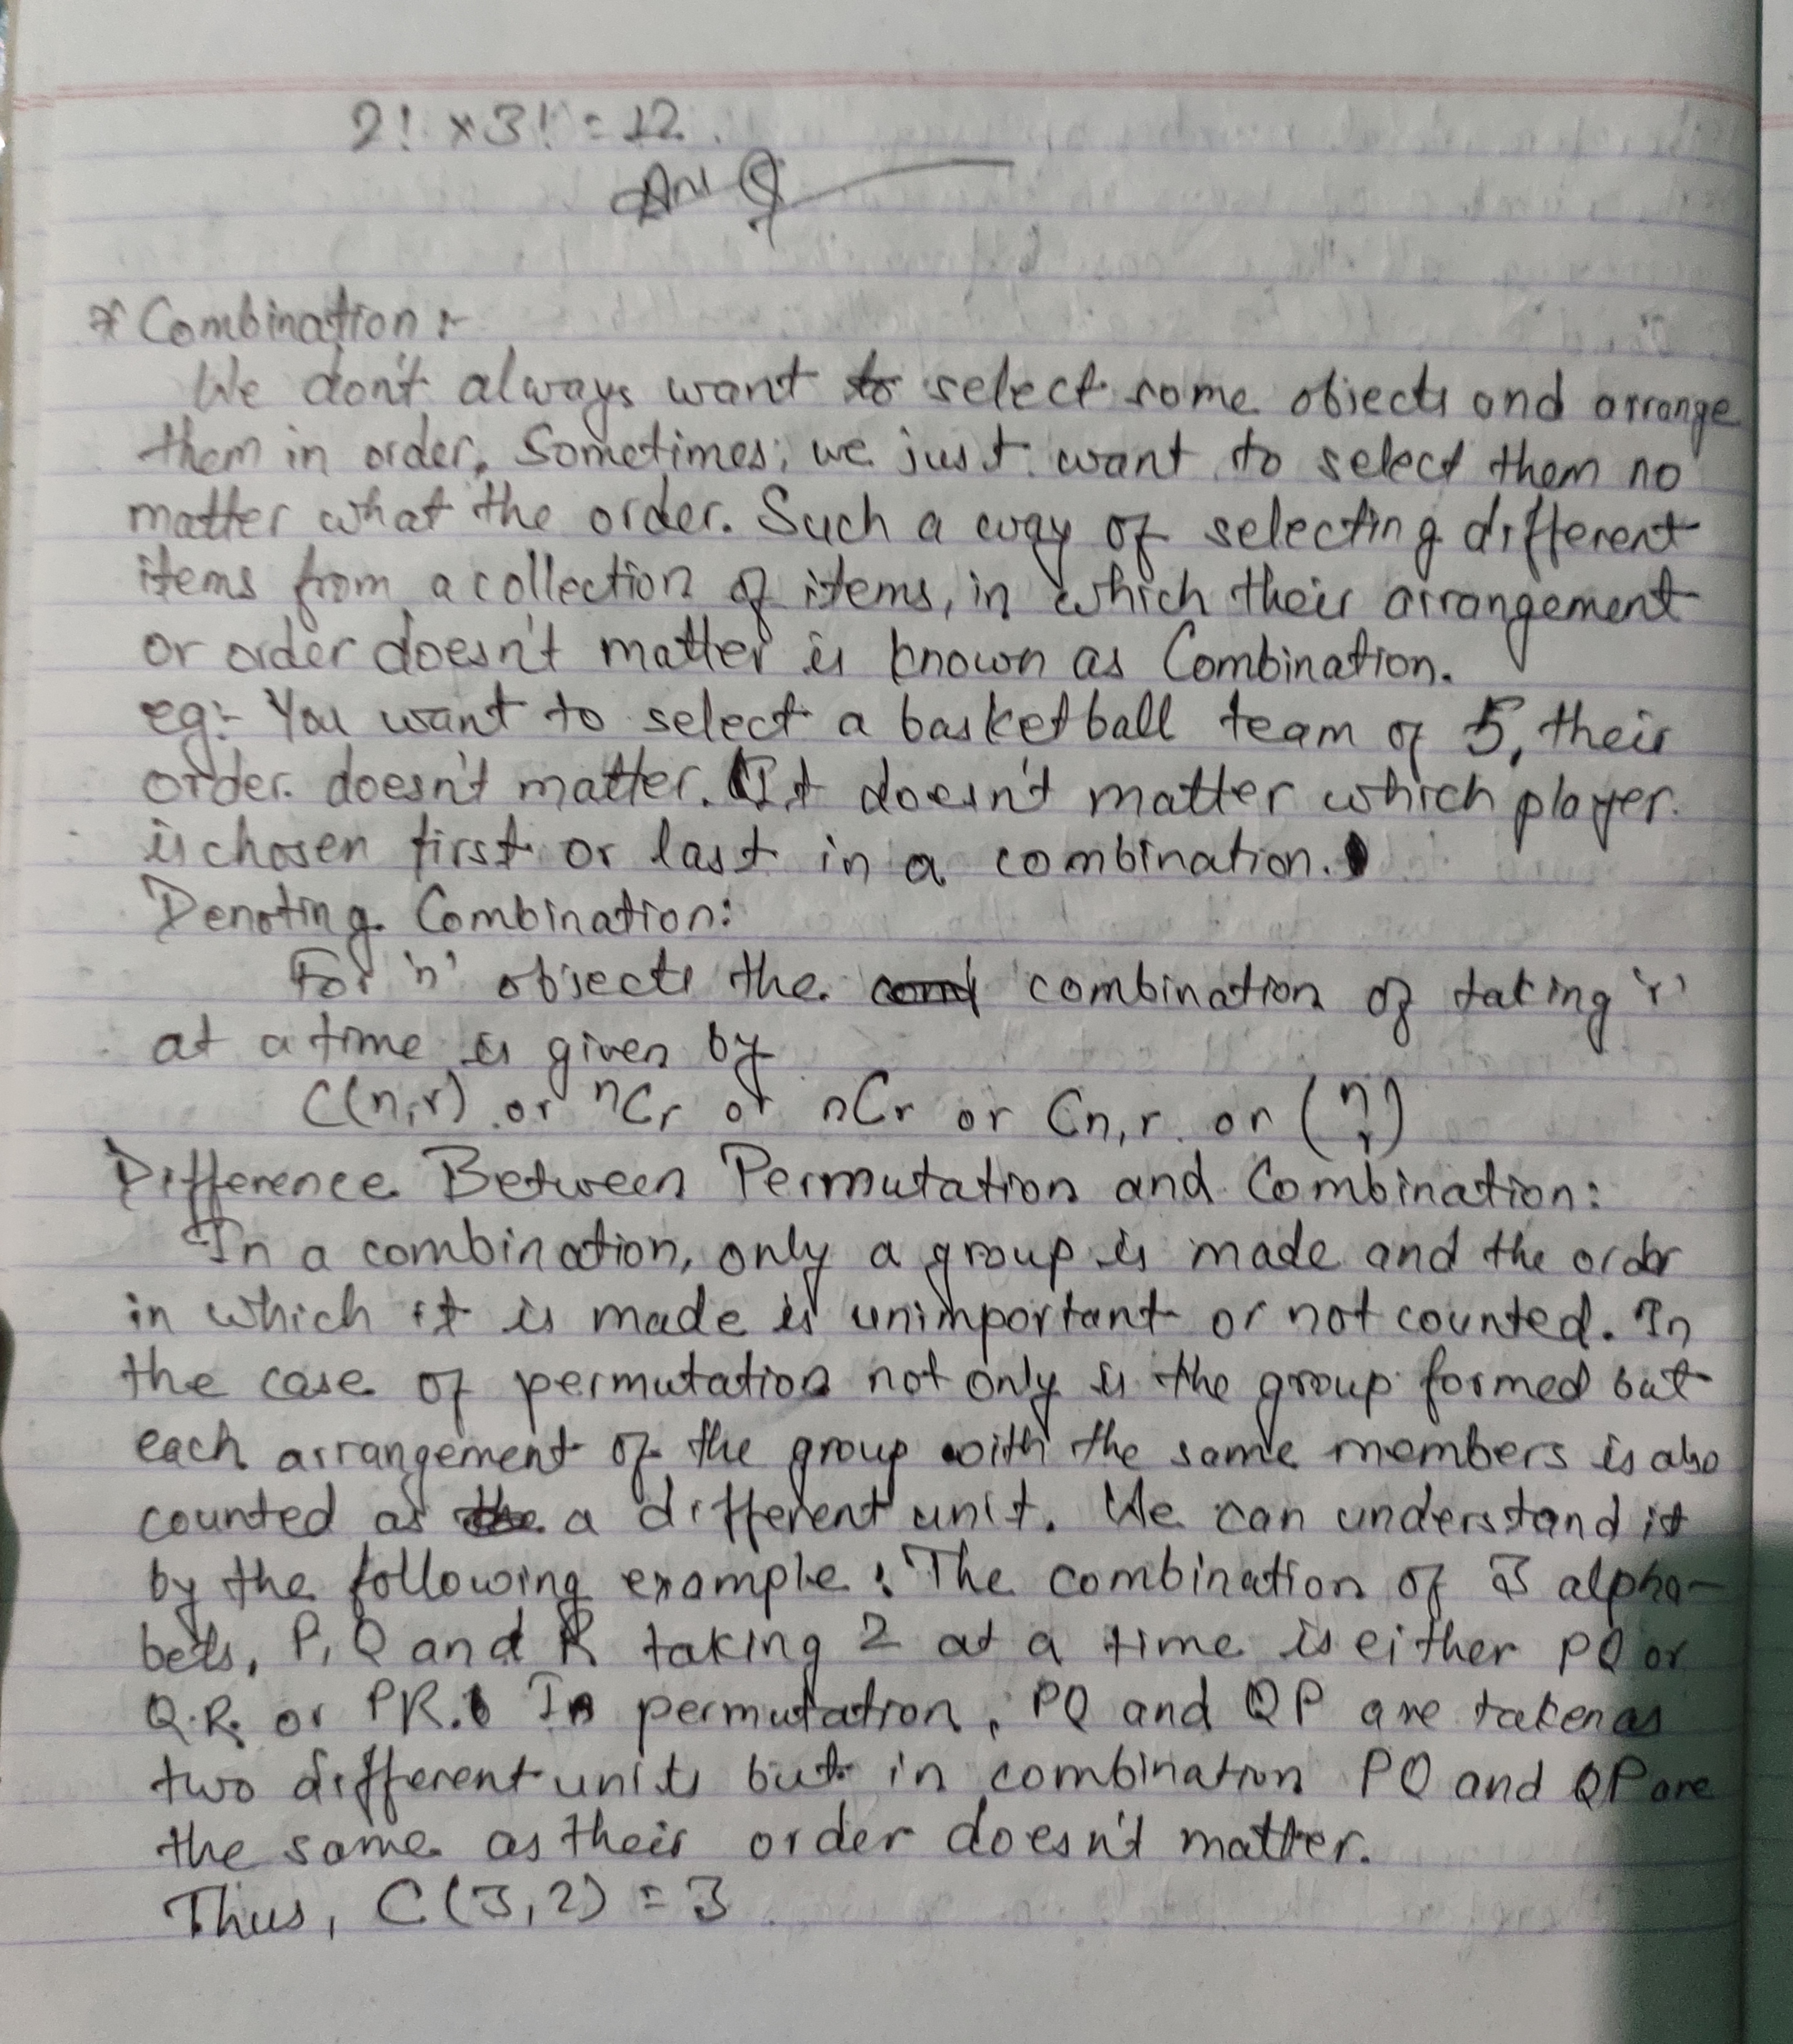 2! × 3! = 12.
Ans
* Combination :-
We don't always want to select some objects and arrange
them in order. Sometimes, we just want to select them no
matter what the order. Such a way of selecting different
items from a collection of items, in which their arrangement
or order doesn't matter is known as Combination.
eg:- You want to select a basketball team of 5, their
order doesn't matter. It doesn't matter which player
is chosen first or last in a combination.
Denoting Combination:
For 'n' objects the combination of taking 'r'
at a time is given by
C(n,r) or ⁿCᵣ or nCr or Cn,r or (n r)
Difference Between Permutation and Combination:
In a combination, only a group is made and the order
in which it is made is unimportant or not counted. In
the case of permutation not only is the group formed but
each arrangement of the group with the same members is also
counted as a different unit. We can understand it
by the following example: The combination of 3 alpha-
bets, P, Q and R taking 2 at a time is either PQ or
Q.R. or PR. In permutation, PQ and QP are taken as
two different units but in combination PQ and QP are
the same as their order doesn't matter.
Thus, C(3,2) = 3